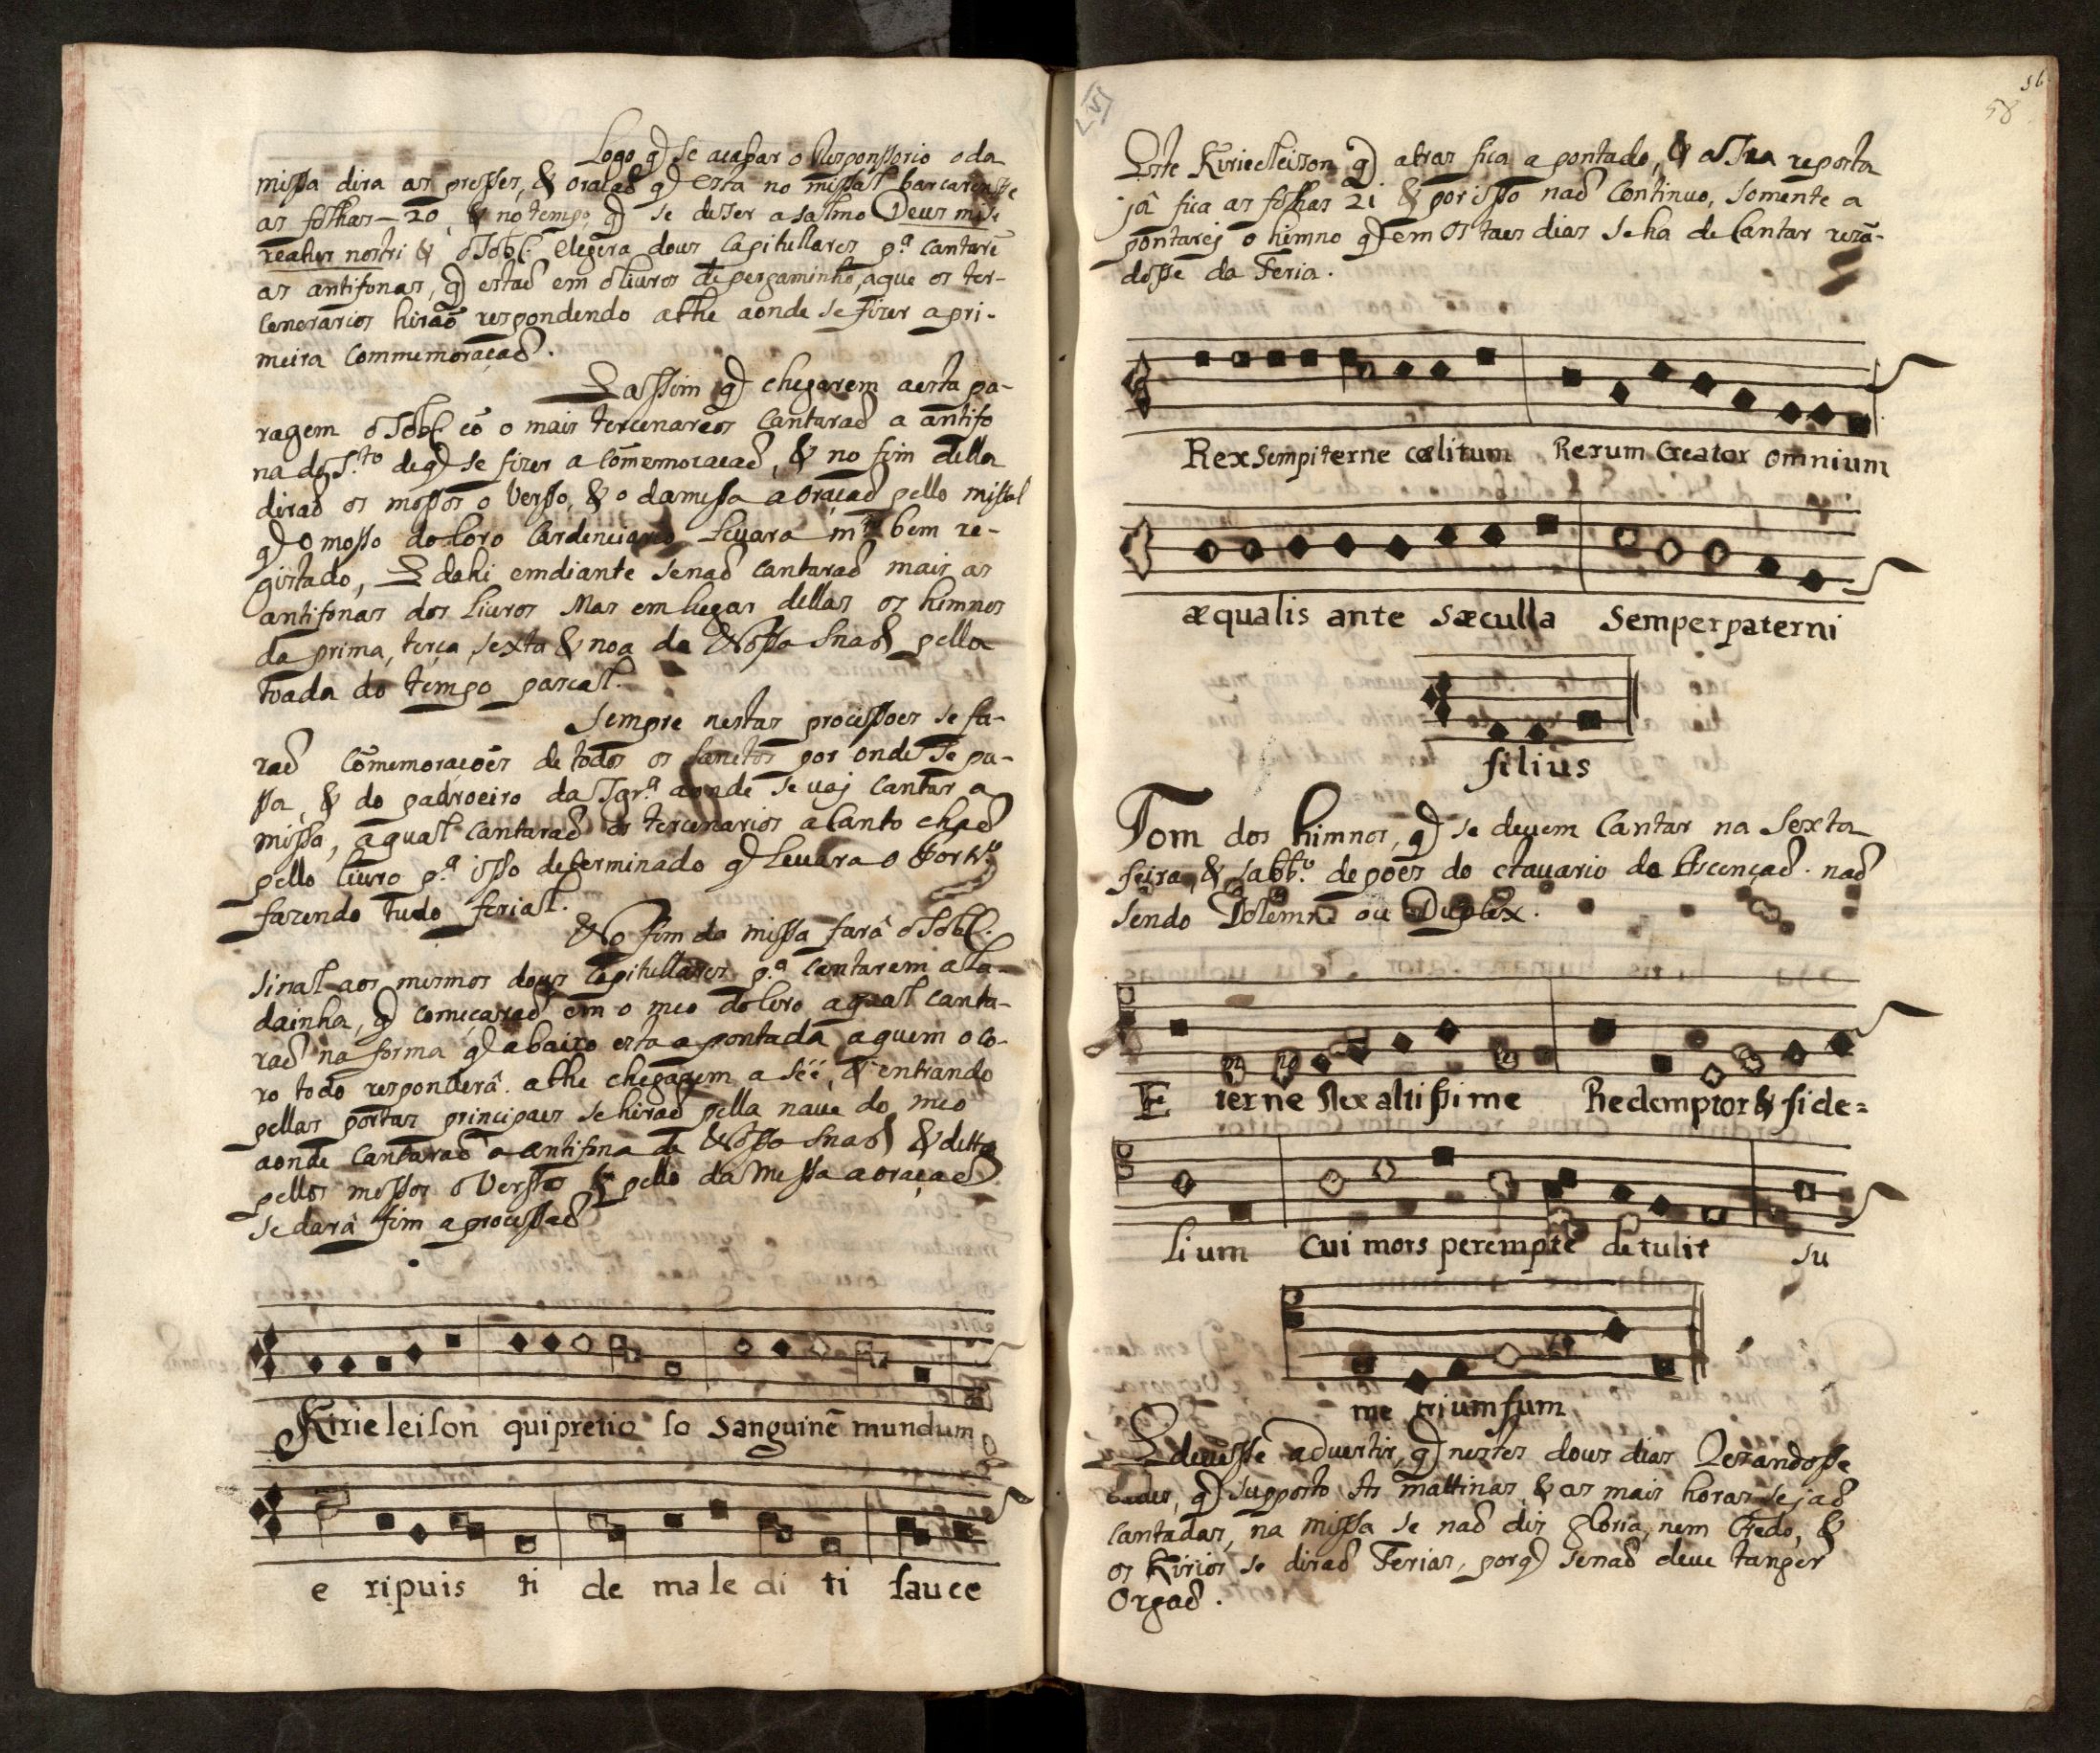 Logo q̃ se acabar o Responssorio o da
missa dira as presses, & oraçaõ q̃ esta no missal barcarensse
as folhas – 20, & no tempo, q̃ se disser a salmo Deus mise
reatur nostri & o Sobc. elegera dous capitullares p.ª cantarẽ
as antifonas, q̃ estaõ em o liuros de pergaminho, a que os ter-
cenerarios hiraõ respondendo athe aonde se fizer a pri-
meira commemoraçaõ.
E assim q̃ chegarem a esta pa-
ragem o Sobc. cõ o mais tercenareos cantaraõ a antifo
na do S.to de q̃ se fizer a cõmemoracaõ, & no fim della
diraõ os mossos o Versso, & o da missa a oraçaõ pello missal
q̃ o mosso do Coro leuara m.to bem re-
gistado, E dahi emdiante se naõ cantaraõ mais as
antifonas dos liuros Mas em lugar dellas os himnos
da prima, terça, sexta & noa de Nossa Snaõ pella
toada do tempo pascal.
Sempre nestas procissoes se fa-
raõ cõmemoraçoẽs de todos os sanctos por onde se pa-
ssa, & do padroeiro da Igr.ª aonde se uaj cantar a
missa, a qual cantaraõ os tercenarios a Canto chaõ
pello liuro p.ª isso determinado q̃ leuara o Portr.º
fazendo tudo ferial.
No fim da missa farâ o Sobc.
sinal aos mesmos dous capitullares p.ª cantarem a la-
dainha, q̃ começaraõ em o meo do Coro a qual canta-
raõ na forma q̃ abaixo esta apontada a quem o co-
ro todo responderâ athe chegarem a séé, & entrando
pellas portas principaes se hiraõ pella naue do meo
aonde cantaraõ a antifona de Nossa Snaõ & ditto
pellos mossos o Versso & pello da Missa a oraçaõ
se darâ fim a procissaõ
Kirieleison qui pretio so sanguinẽ mundum
e ripuis ti de male di ti fauce
56
58
Este Kirieelleison q̃ atras fica apontado, & a sua reposta
jâ fica as folhas 21 & por isso naõ continuo, somente a
pontarej o himno q̃ em os taes dias se ha de Cantar rezã-
dosse da Feria.
Rex sempiterne cœlitum Rerum Creator omnium
æqualis ante sæculla semper paterni
filius
Tom dos himnos, q̃ se deuem Cantar na Sexta
feira, & sabb.º depoes do octauario da Ascençaõ. naõ
sendo Solemn. ou Duplex.
E terne Rex altissime Redemptor & fide=
lium cui mors perempte detulit su
me triumfum
E deuesse aduertir, q̃ nestes dous dias Rezandosse
q̃ supposto As mattinas, & as mais horas sejaõ
cantadas, na missa se naõ dis gloria, nem Credo, &
os Kirios se diraõ Ferias, porq̃ se naõ deue tanger
Orgaõ.